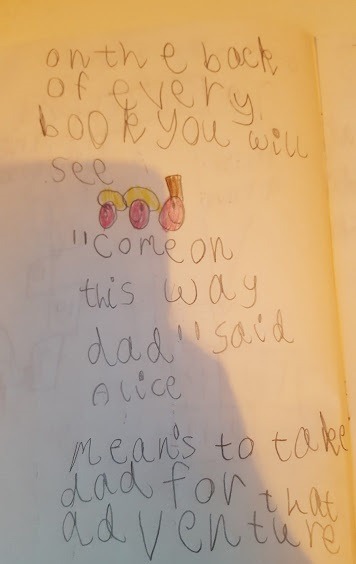 on the back
of every
book you will
see
"come on
this way
dad" said
Alice
means to take
dad for that
adventure